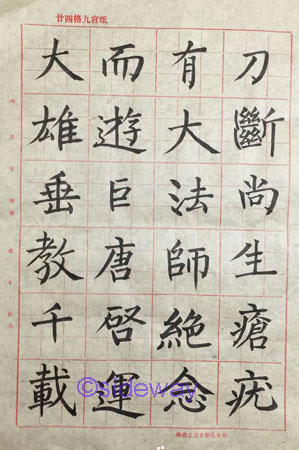 廿四格九宫纸
刀斷尚生瘡疣
有大法師絶念
而遊巨唐啓運
大雄垂教千載
©sideway